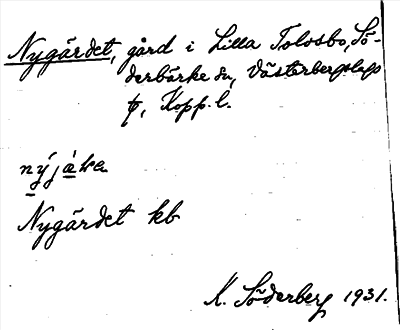 Nygärdet, gård i Lilla Tolsbo, Sö-
derbärke sn, Västerbergslags
tg, Kopp. l.
Nygärdet kb
K. Söderberg 1931.